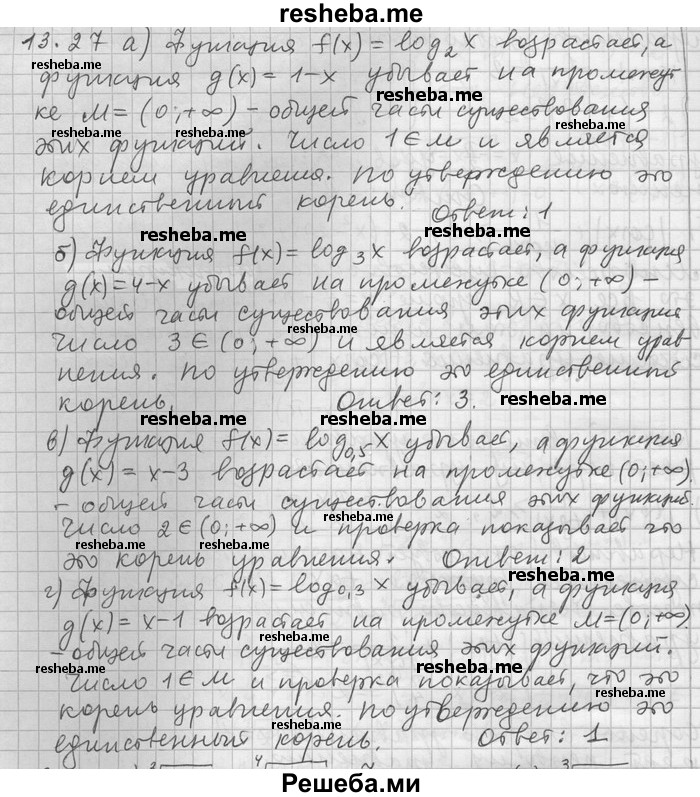 resheba.me
13.27 а) Функция f(x) = log₂ x возрастает, а
функция g(x) = 1-x убывает на промежут
ке M = (0; +∞) - общей части существования
resheba.me resheba.me resheba.me
этих функций. Число 1 ∈ M и является
корнем уравнения. По утверждению это
единственный корень. Ответ: 1
resheba.me resheba.me
б) Функция f(x) = log₃ x возрастает, а функция
g(x) = 4-x убывает на промежутке (0; +∞) -
resheba.me
общей части существования этих функций
resheba.me
Число 3 ∈ (0; +∞) и является корнем урав-
нения. По утверждению это единственный
корень. Ответ: 3. resheba.me
resheba.me resheba.me
в) Функция f(x) = log₀,₅ x убывает, а функция
g(x) = x-3 возрастает на промежутке (0; +∞)
- общей части существования этих функций.
Число 2 ∈ (0; +∞) и проверка показывает что
resheba.me resheba.me
это корень уравнения. Ответ: 2
resheba.me
г) Функция f(x) = log₀,₃ x убывает, а функция
g(x) = x-1 возрастает на промежутке M = (0; +∞)
resheba.me
- общей части существования этих функций.
resheba.me resheba.me
Число 1 ∈ M и проверка показывает, что это
resheba.me
корень уравнения. По утверждению это
единственный корень. Ответ: 1
Решеба.ми